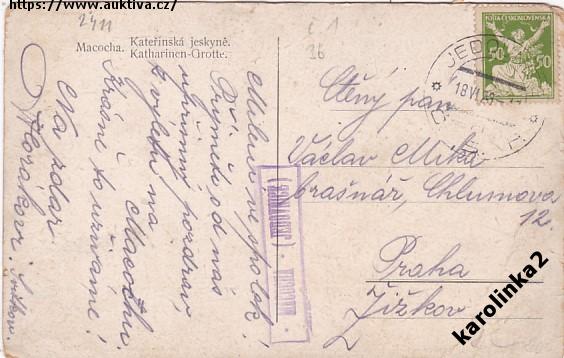 https://www.auktiva.cz/
2411
č 1
26
Macocha. Kateřinská jeskyně.
Katharinen-Grotte.
POŠTA ČESKOSLOVENSKÁ
50 50
JED
18 VI
Milení
Přijměte od nás
upřímný pozdrav
z výletu na
Macochu.
Krásně to užíváme!
Na zdar
Horákovi.
Ctěný pan
Václav Mika
brašnář, Chlumova
12.
Praha
Žižkov
MACOCHA
karolinka2